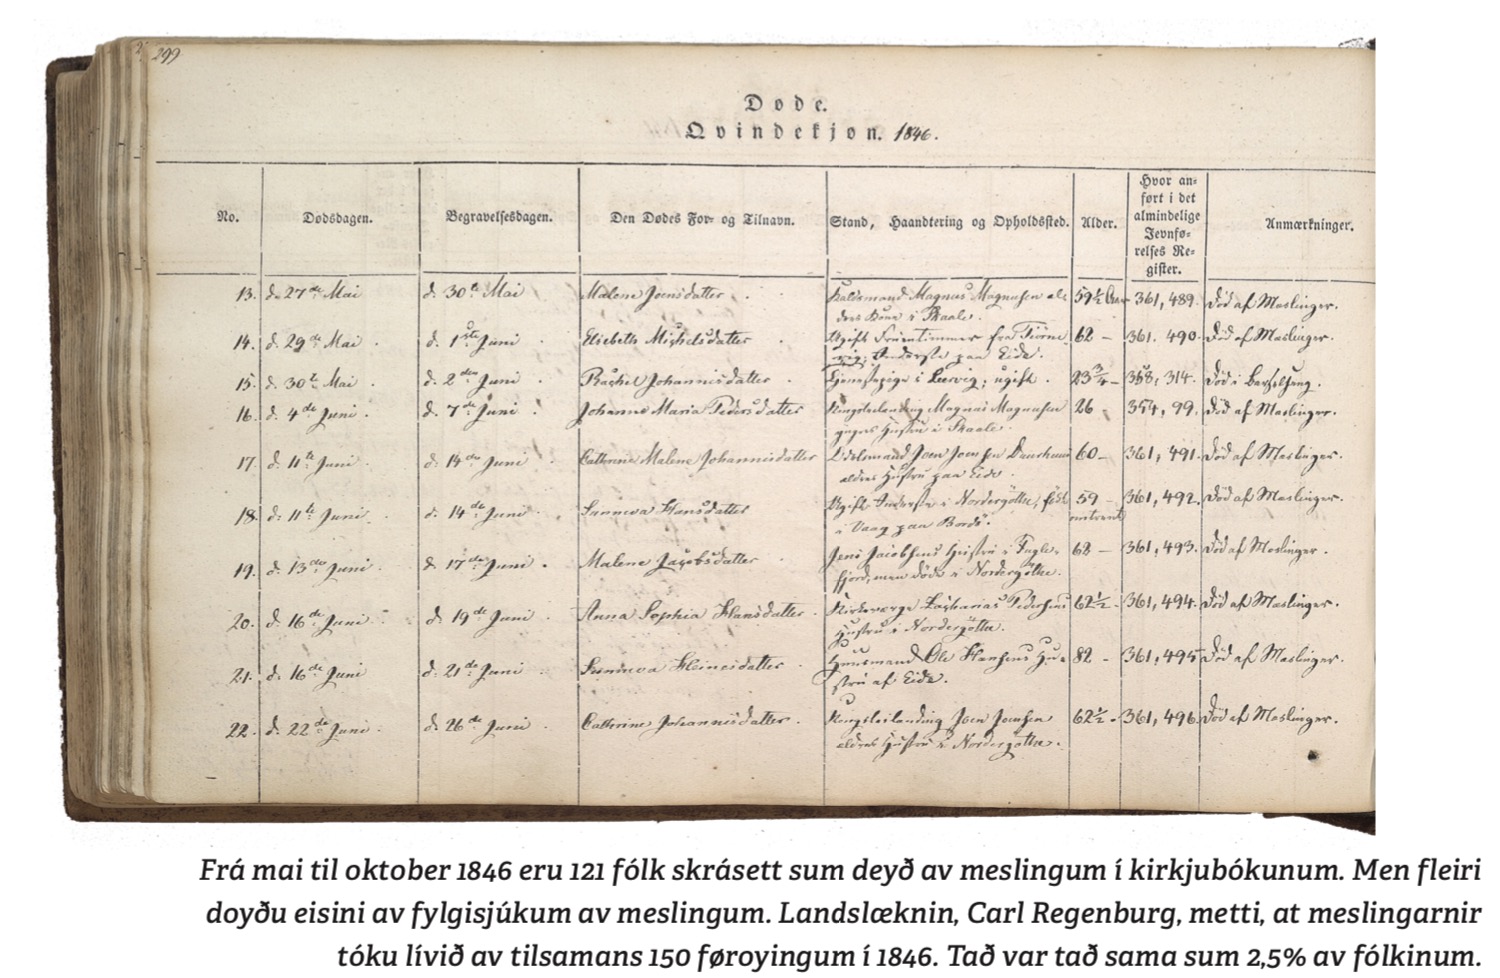 299
Døde.
Qvindekjøn. 1846.
No.
Dødsdagen.
Begravelsesdagen.
Den Dødes For- og Tilnavn.
Stand, Haandtering og Opholdssted.
Alder.
Hvor an-
ført i det
almindelige
Jevnfø-
relses Re-
gister.
Anmærkninger.
13. d. 27de Mai d. 30te Mai Malene Joensdatter Magnus Magnusen 59½ Aar 361, 489. Død af Meslinger.
Kone i Skaale.
14. d. 29de Mai d. 1ste Juni Elsebeth Michelsdatter Ugift Fruentimmer fra 62 – 361. 490. Død af Meslinger.
Inderste paa Eide.
15. d. 30te Mai d. 2den Juni Rachel Johannisdatter Tjenestepige i Leervig, ugift. 23¾ – 358, 314. Død i Barselseng.
16. d. 4de Juni d. 7de Juni Johanne Maria Pedersdatter Magnus Magnusen 26 354, 99. Død af Meslinger.
yngres Hustru i Skaale.
17. d. 11te Juni d. 14de Juni Cathrine Malene Johannisdatter Odelsmand Joen Joensen 60 – 361, 491. Død af Meslinger.
ældres Hustru paa Eide.
18. d. 11te Juni d. 14de Juni Sunneva Hansdatter Ugift Inderste i Nordregøtte, født 59 – 361, 492. Død af Meslinger.
i Vaag paa Bordø. omtrent
19. d. 13de Juni d. 17de Juni Malene Jacobsdatter Jens Jacobsens Hustru i Fugle- 68 – 361, 493. Død af Meslinger.
fjord, men døde i Nordregøtte.
20. d. 16de Juni d. 19de Juni Anna Sophia Hansdatter Kirkeværge Zacharias Pedersens 62½ – 361, 494. Død af Meslinger.
Hustru i Nordregøtte.
21. d. 16de Juni d. 21de Juni Sunneva Heinesdatter Huusmand Ole Hansens Hu- 82 – 361, 495. Død af Meslinger.
stru af Eide.
22. d. 22de Juni d. 26de Juni Cathrine Johannisdatter Joen Joensen 62½ – 361, 496. Død af Meslinger.
ældres Hustru i Nordregøtte.
Frá mai til oktober 1846 eru 121 fólk skrásett sum deyð av meslingum í kirkjubókunum. Men fleiri
doyðu eisini av fylgisjúkum av meslingum. Landslæknin, Carl Regenburg, metti, at meslingarnir
tóku lívið av tilsamans 150 føroyingum í 1846. Tað var tað sama sum 2,5% av fólkinum.